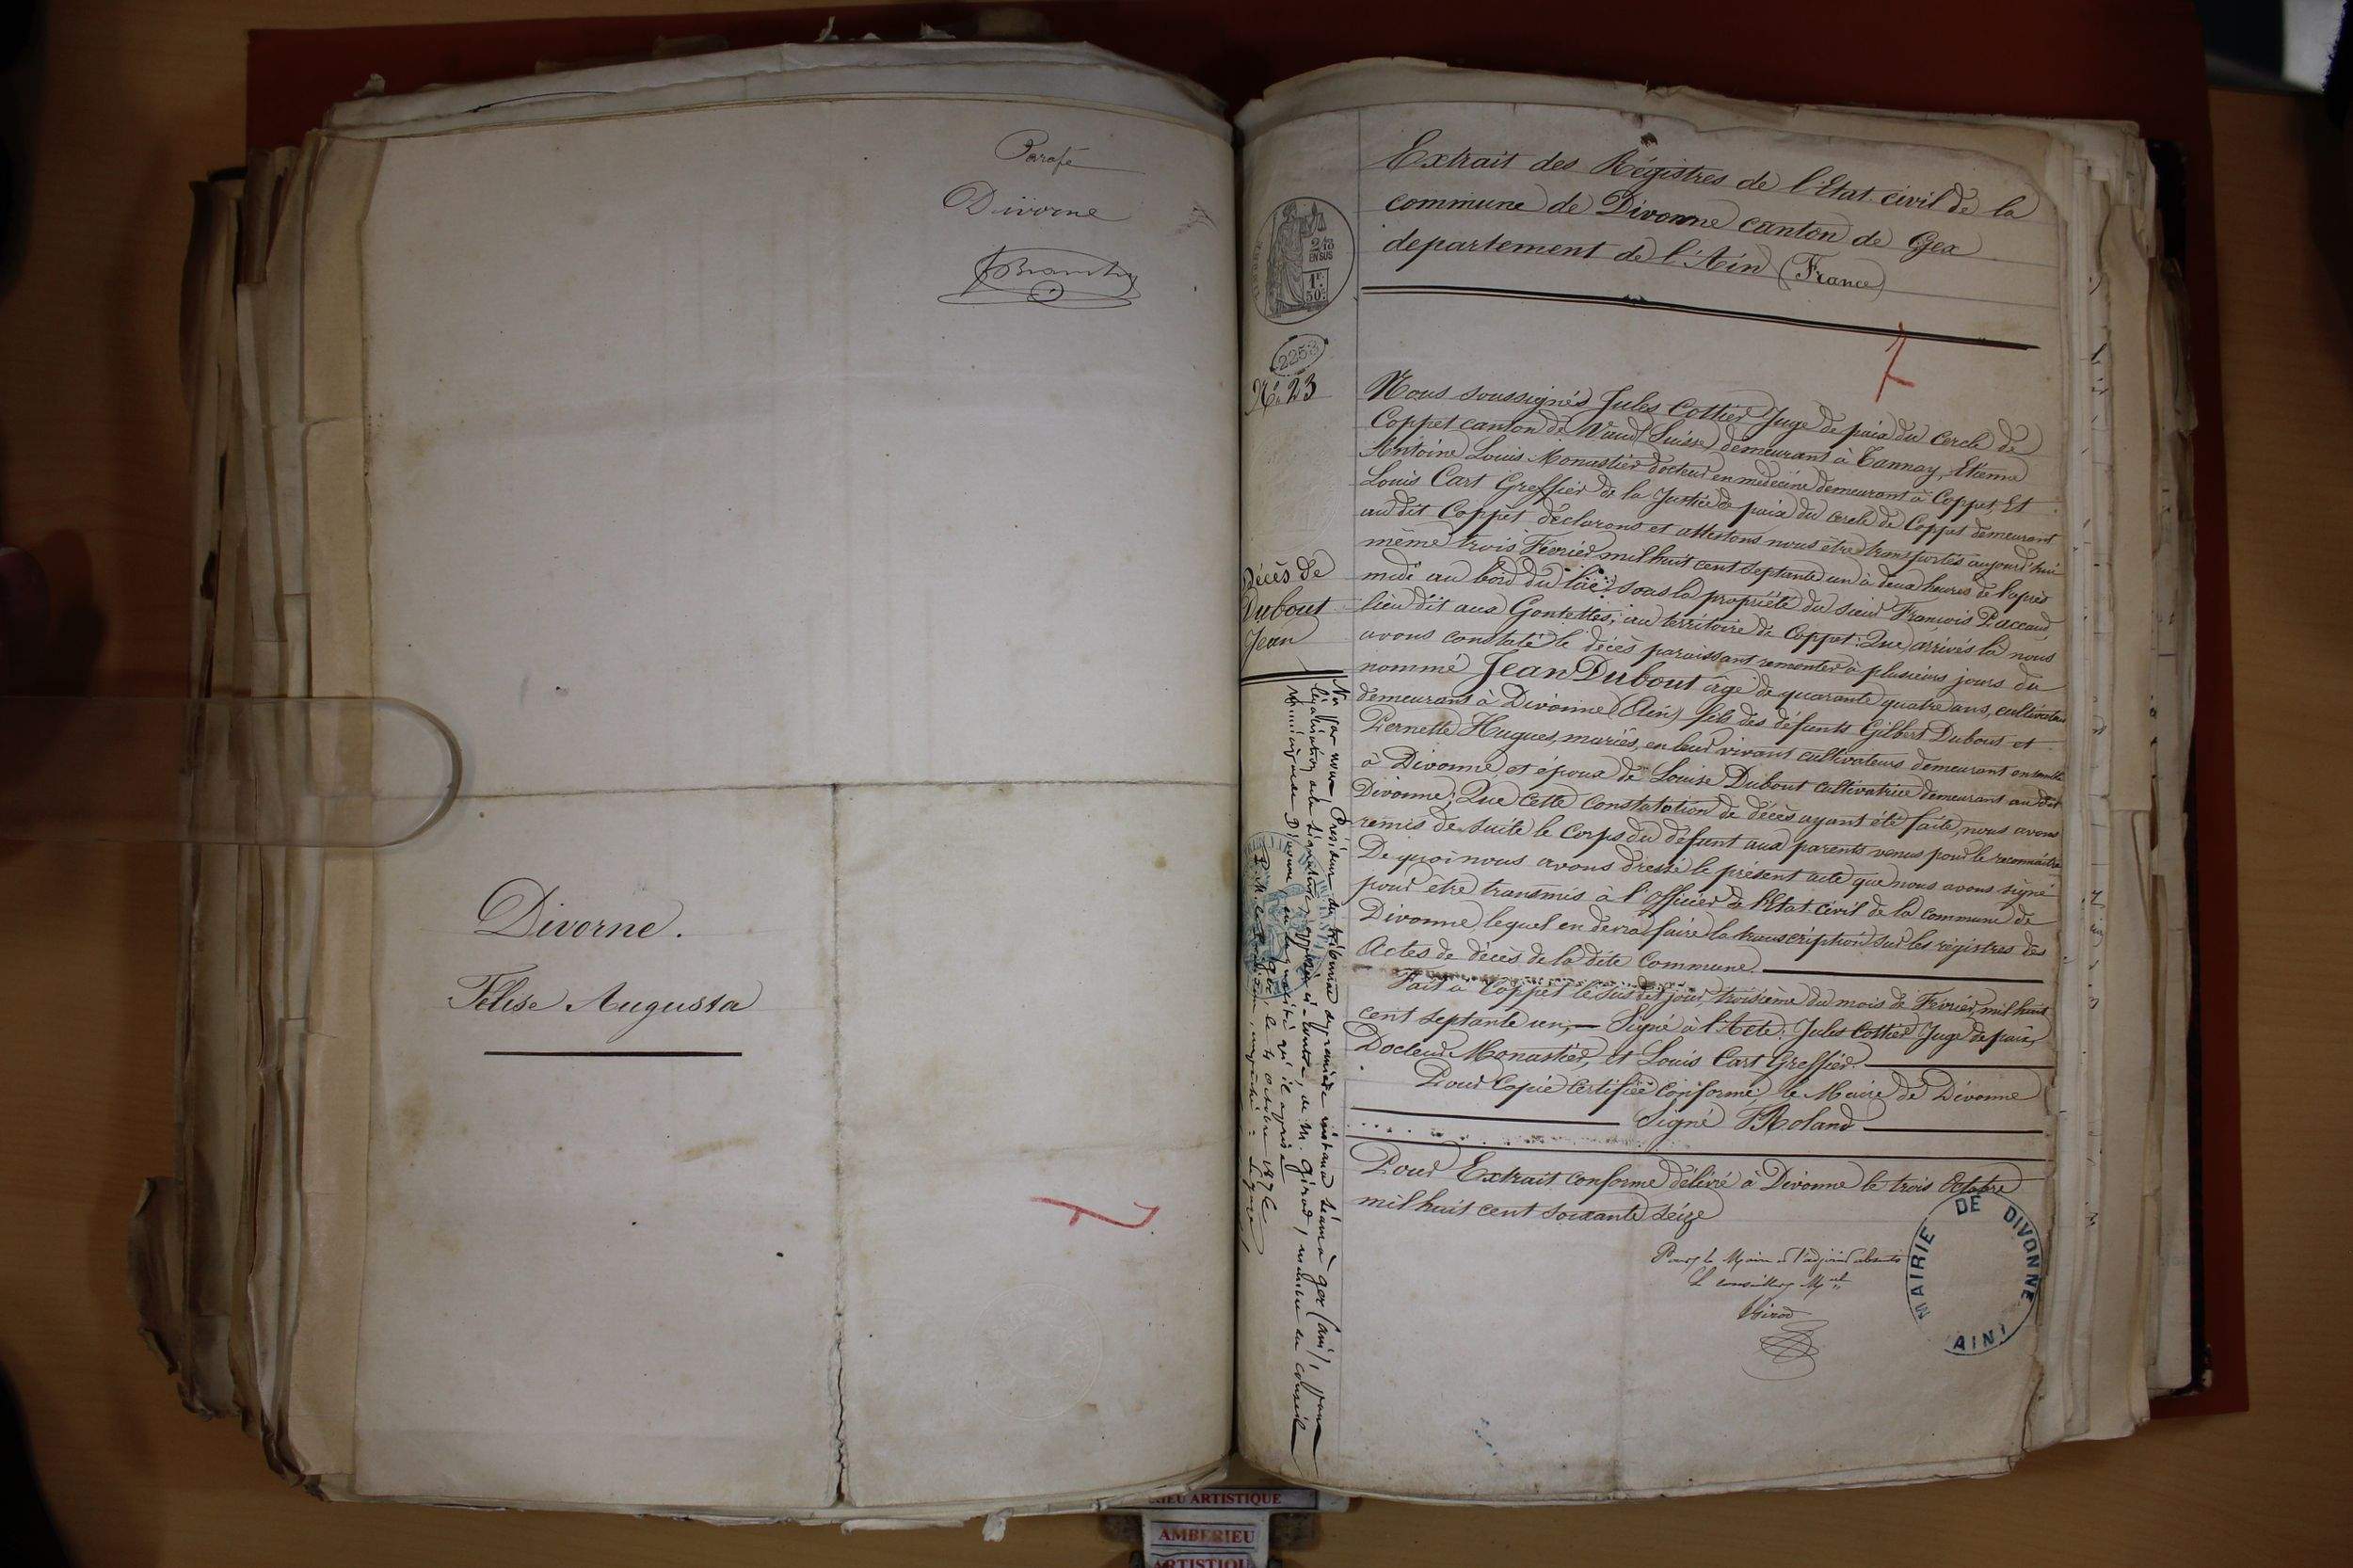 Parafé
Divorne
Divorne.
Félise Augusta
Extrait des Régistres de l'Etat civil de la
commune de Divonne canton de Gex
departement de l'Ain (France)
2/10
EN SUS
1F
50c
2253
No. 23
Décès de
Dubout
Jean
Nous soussignés Jules Cottier Juge de paix du Cercle de
Coppet canton de Vaud (Suisse) demeurant à Tannay, Etienne
Antoine Louis Monastier docteur en médecine demeurant à Coppet, Et
Louis Cart Greffier de la Justice de paix du cercle de Coppet demeurant
au dit Coppet déclarons et attestons nous être transportés aujourd'hui
même trois Février mil huit cent septante un à deux heures de l'après
midi au bord du lac, sous la propriété du sieur François Paccaud
lieu dit aux Gontettes, au territoire de Coppet: Que arrivés là nous
avons constaté le décès paraissant remonter à plusieurs jours du
nommé Jean Dubout âgé de quarante quatre ans, cultivateur
demeurant à Divonne (Ain) fils des défunts Gilbert Dubout et
Pernette Hugues, mariés, en leur vivant cultivateurs demeurant ensemble
à Divonne, et époux de Louise Dubout cultivatrice demeurant au dit
Divonne; Que cette constatation de décès ayant été faite, nous avons
remis de suite le corps du défunt aux parents venus pour le reconnaître
De quoi nous avons dressé le présent acte que nous avons signé
pour être transmis à l'Officier de l'Etat civil de la commune de
Divonne, lequel en devra faire la transcription sur les régistres des
Actes de décès de la dite Commune.
Fait à Coppet le susdit jour, troisième du mois de Février, mil huit
cent septante un, — Signé à l'Acte: Jules Cottier Juge de paix,
Docteur Monastier, et Louis Cart Greffier.
Pour Copie Certifiée Conforme, le Maire de Divonne
Signé F. Roland
Pour Extrait conforme délivré à Divonne le trois Octobre
mil huit cent soixante seize
Pour le Maire et l'adjoint absents
Le conseiller Mal
Girod
MAIRIE DE DIVONNE
AIN
Vu par nous Président du tribunal de première instance séant à Gex (Ain), pour
légalisation de la signature apposée ci-contre, de M. Girod, membre du conseil
Municipal de Divonne, en la qualité qu'il a prise
Gex, le 4 octobre 1876
ARTISTIQUE
AMBERIEU
ARTISTIQUE